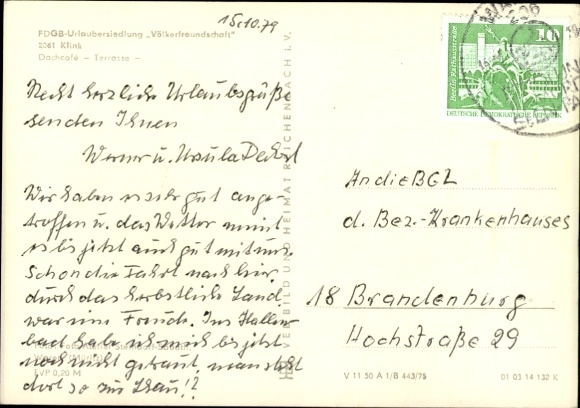 15.10.79
FDGB-Urlaubersiedlung „Völkerfreundschaft"
2261 Klink
Dachcafé – Terrasse –
Recht herzliche Urlaubsgrüße
senden Ihnen
Werner u. Ursula
Wir haben es sehr gut ange-
troffen u. das Wetter meint
es bis jetzt auch gut mit uns.
Schon die Fahrt nach hier,
durch das herbstliche Land
war eine Freude. Ins Hallen-
bad habe ich mich bis jetzt
noch nicht getraut, man steht
dort so zur Schau!?
EVP 0,20 M
VERBILD UND HEIMAT REICHENBACH I. V.
Berlin, Rathausstraße
10
DEUTSCHE DEMOKRATISCHE REPUBLIK
An die BGL
d. Bez.-Krankenhauses
18 Brandenburg
Hochstraße 29
V 11 50 A 1/B 443/75
01 03 14 132 K